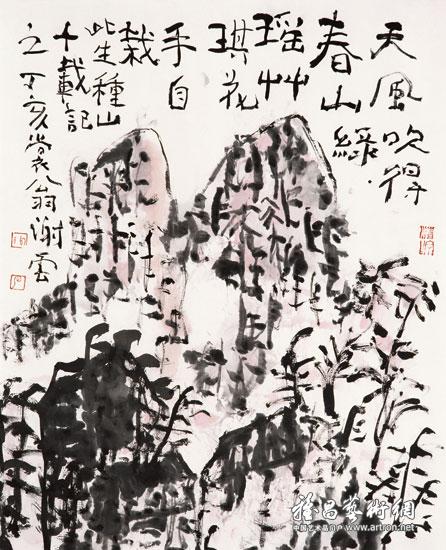 天風吹得
春山綠
瑶艸
琪花
手自
栽 此生種山
十載記
之 丁亥裳翁谢雲
雅昌藝術網
中国艺术品门户 www.artron.net